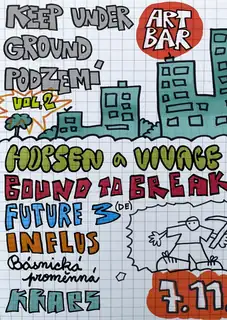 KEEP UNDER
GROUND
PODZEMÍ
VOL 2
ART
BAR
HOPSEN a VIVAGE
BOUND TO BREAK
FUTURE 3 (DE)
INFLUS
Básnická
proměnná
KRAPS
7.11.